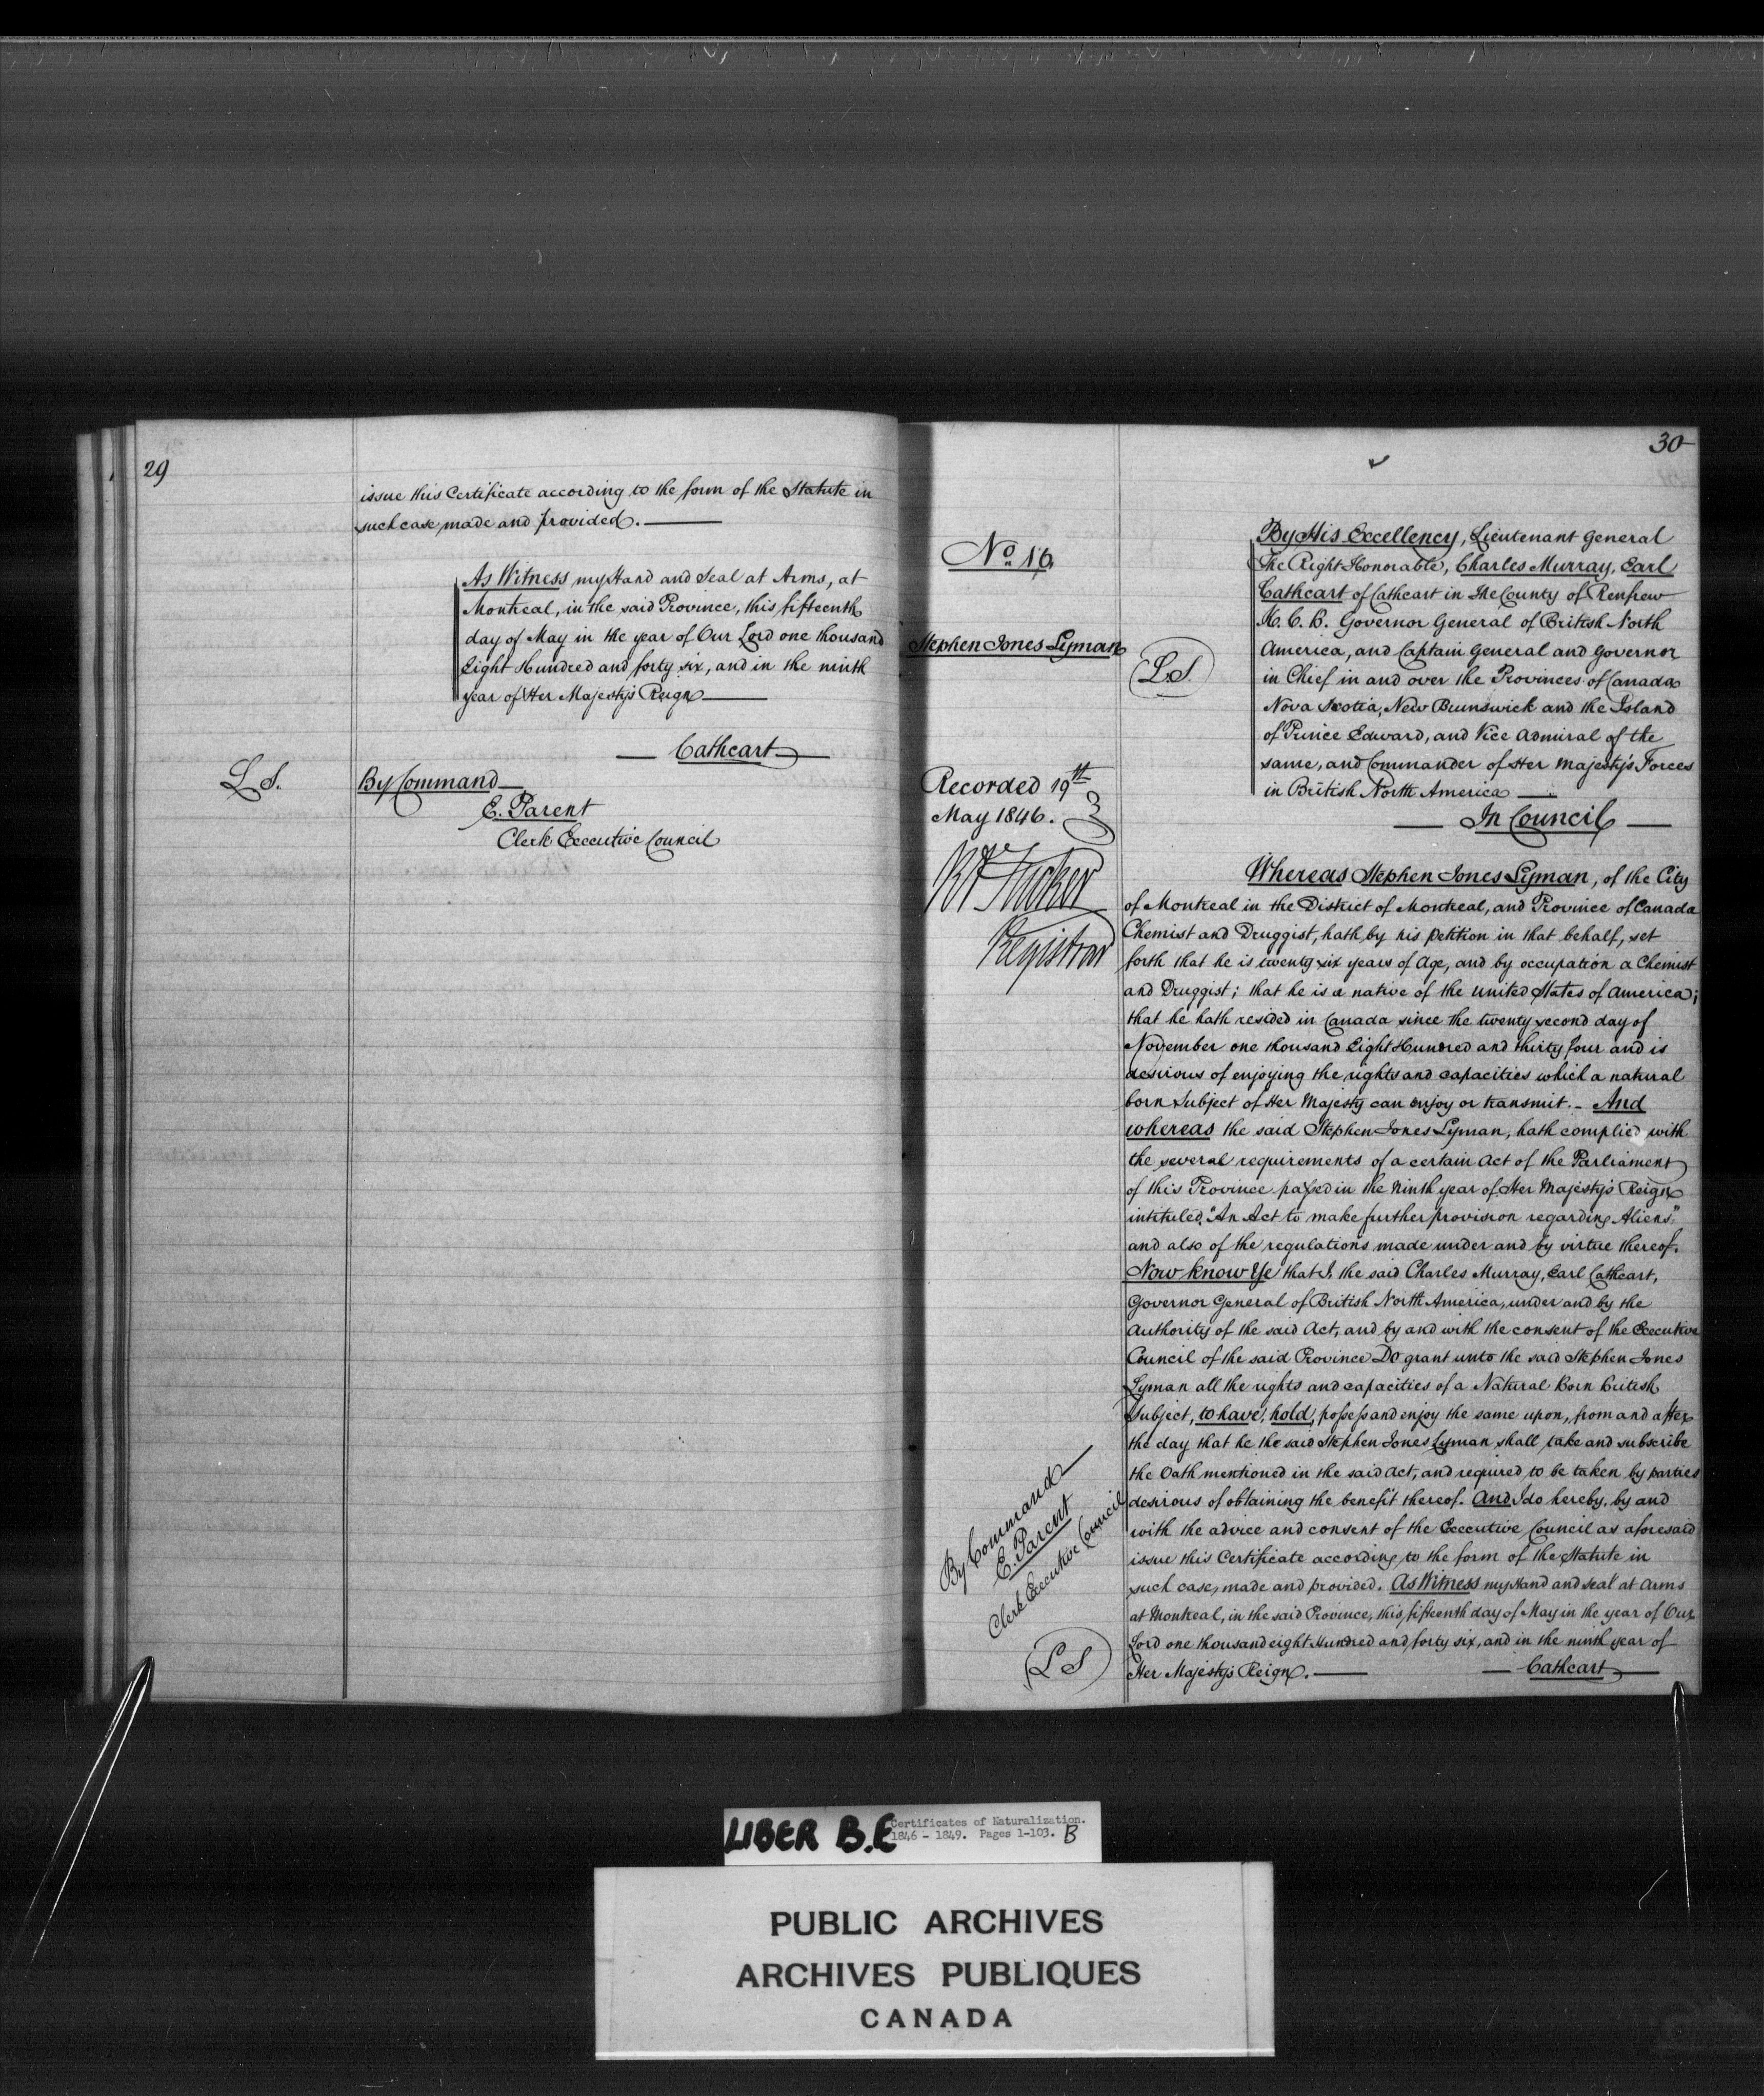 29
issue this Certificate according to the form of the Statute in
such case, made and provided. —
As Witness my Hand and Seal at Arms, at
Montreal, in the said Province, this fifteenth
day of May in the year of Our Lord one thousand
Eight Hundred and forty six, and in the ninth
year of Her Majesty's Reign —
— Cathcart —
L.S.
By Command —
E. Parent
Clerk Executive Council
30
No. 16
Stephen Jones Lyman
L.S.
Recorded 19th
May 1846.
Tucker
Registrar
By His Excellency, Lieutenant General
The Right Honorable, Charles Murray, Earl
Cathcart of Cathcart in The County of Renfrew
K. C. B. Governor General of British North
America, and Captain General and Governor
in Chief in and over the Provinces of Canada
Nova Scotia, New Brunswick and the Island
of Prince Edward, and Vice Admiral of the
same, and Commander of Her Majesty's Forces
in British North America —
— In Council —
Whereas Stephen Jones Lyman, of the City
of Montreal in the District of Montreal, and Province of Canada
Chemist and Druggist, hath by his Petition in that behalf, set
forth that he is twenty six years of Age, and by occupation a Chemist
and Druggist; that he is a native of the United States of America;
that he hath resided in Canada since the twenty second day of
November one thousand Eight Hundred and thirty four and is
desirous of enjoying the rights and capacities which a natural
born Subject of Her Majesty can enjoy or transmit. – And
whereas the said Stephen Jones Lyman, hath complied with
the several requirements of a certain Act of the Parliament
of this Province passed in the Ninth year of Her Majesty's Reign
intituled, "An Act to make further provision regarding Aliens"
and also of the regulations made under and by virtue thereof.
Now know Ye that I, the said Charles Murray, Earl Cathcart,
Governor General of British North America, under and by the
Authority of the said Act, and by and with the consent of the Executive
Council of the said Province Do grant unto the said Stephen Jones
Lyman all the rights and capacities of a Natural Born British
Subject, to have, hold, possess and enjoy the same upon, from and after
the day that he the said Stephen Jones Lyman shall take and subscribe
the Oath mentioned in the said Act, and required to be taken by parties
desirous of obtaining the benefit thereof. And I do hereby, by and
with the advice and consent of the Executive Council as aforesaid
issue this Certificate according to the form of the Statute in
such case, made and provided. As Witness my Hand and Seal at Arms
at Montreal, in the said Province, this fifteenth day of May in the year of Our
Lord one thousand eight Hundred and forty six, and in the ninth year of
Her Majesty's Reign. — — Cathcart —
By Command —
E. Parent
Clerk Executive Council
L S
LIBER B.E
Certificates of Naturalization.
1846 - 1849. Pages 1-103. B
PUBLIC ARCHIVES
ARCHIVES PUBLIQUES
CANADA